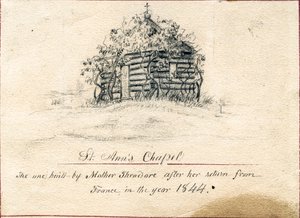 St. Ann's Chapel
The one built by Mother Theodore after her return from
France in the year 1844.